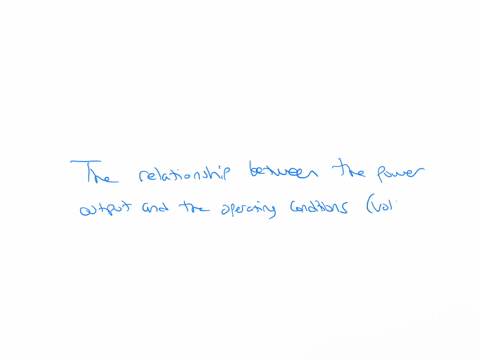 The relationship between the power
output and the operating conditions (vol